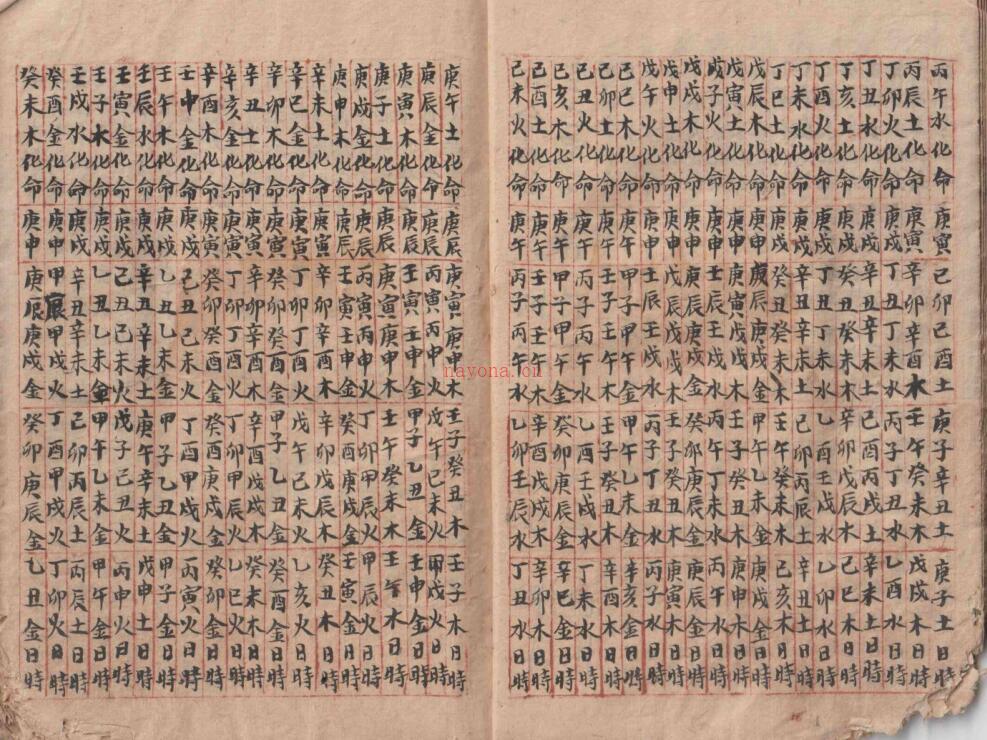 丙午水化命庚寅己卯己酉土庚子辛丑土庚子土日時
丙辰土化命庚寅辛卯辛酉木壬午癸未木戊戌木日時
丁卯火化命庚戌丁丑丁未水丙子丁丑水乙酉水日時
丁丑水化命庚戌辛丑辛未土己酉丙戌土辛未土日時
丁亥土化命庚戌癸丑癸未木辛卯戊辰木己巳木日時
丁酉火化命庚戌丁丑丁未水乙酉壬戌水乙卯水日時
丁未水化命庚戌辛丑辛未土己卯丙辰土辛丑土日時
丁巳土化命庚戌癸丑癸未木壬午癸未木己亥木日時
戊辰木化命庚申庚辰庚戌金甲午乙未金庚戌金日時
戊寅土化命庚申戊戌木壬子癸丑木庚申木日時
戊子火化命庚申壬辰壬戌水丙午丁未水丙午水日時
戊戌木化命庚申庚辰庚戌金癸卯庚辰金庚辰金日時
戊申土化命庚申戊辰戊戌木壬子癸丑木庚寅木日時
戊午火化命庚申壬辰壬戌水丙子丁丑水丙子水日時
己巳木化命庚午甲子甲午金甲午乙未金辛亥金日時
己卯土化命庚午壬子壬午木壬子癸丑木辛木日時
己丑火化命庚午丙子丙午水乙酉壬戌水丁未水日時
己亥木化命庚午甲子甲午金癸卯庚辰金辛巳金日時
己酉土化命庚午壬子壬午木辛酉戊戌木辛卯木日時
己未火化命庚午丙子丙午水乙卯壬辰水丁丑水日時
庚午土化命庚辰庚寅庚申木壬子癸丑木壬子木日時
庚辰金化命庚辰丙寅丙申火戊午己未火甲戌火日時
庚寅木化命庚辰壬寅壬申金甲子乙丑金壬申金日時
庚子土化命庚辰庚寅庚申木壬午癸未木壬午木日時
庚戌金化命庚辰丙寅丙申火丁卯甲辰火甲辰火日時
庚申木化命庚辰壬寅壬申金癸酉庚戌金壬寅金日時
辛未土化命庚寅辛卯辛酉木辛卯戊辰木癸丑木日時
辛巳金化命庚寅丁卯丁酉火戊午己未火乙亥火日時
辛卯木化命庚寅癸卯癸酉金甲子乙丑金癸酉金日時
辛丑土化命庚寅辛卯辛酉木辛酉戊戌木癸未木日時
辛亥金化命庚寅丁卯丁酉火丁卯甲辰火乙巳火日時
辛酉木化命庚寅癸卯癸酉金癸酉庚戌金癸卯金日時
壬申金化命庚戌己丑己未火丁酉甲戌火丙寅火日時
壬午木化命庚戌乙丑乙未金甲子乙丑金甲子金日時
壬辰水化命庚戌辛丑辛未土庚午辛未土戊申土日時
壬寅金化命庚戌己丑己未火戊子己丑火丙申火日時
壬子木化命庚戌乙丑乙未金甲午乙未金甲午金日時
壬戌水化命庚戌辛丑辛未土己卯丙辰土丙辰土日時
癸酉金化命庚申甲辰甲戌火丁酉甲戌火丁卯火日時
癸未木化命庚申庚辰庚戌金癸卯庚辰金乙丑金日時